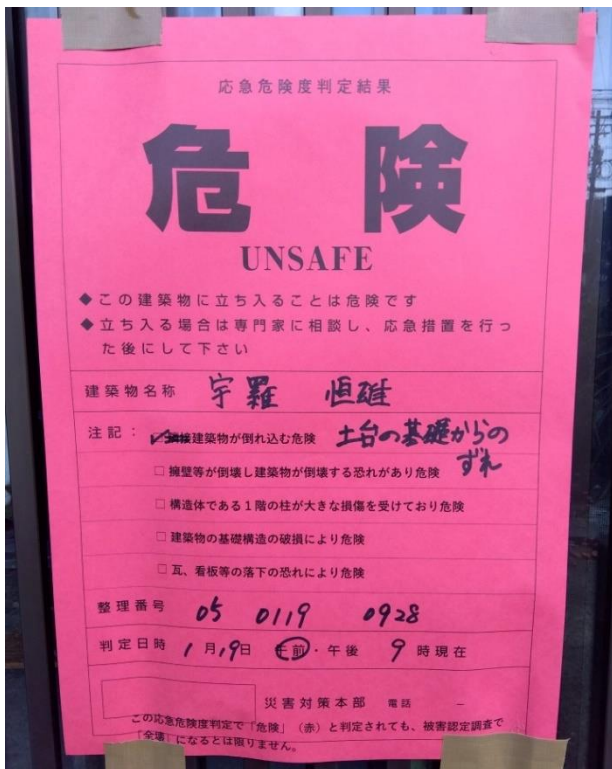 応急危険度判定結果
危険
UNSAFE
◆この建築物に立ち入ることは危険です
◆立ち入る場合は専門家に相談し、応急措置を行っ
た後にして下さい
建築物名称 宇羅 恒雄
注記:
建築物が倒れ込む危険 土台の基礎からの
ずれ
□擁壁等が倒壊し建築物が倒壊する恐れがあり危険
□構造体である1階の柱が大きな損傷を受けており危険
□建築物の基礎構造の破損により危険
□瓦、看板等の落下の恐れにより危険
整理番号 05 0119 0928
判定日時 1月19日 午前・午後 9時現在
災害対策本部 電話 −
この応急危険度判定で「危険」(赤)と判定されても、被害認定調査で
「全壊」になるとは限りません。